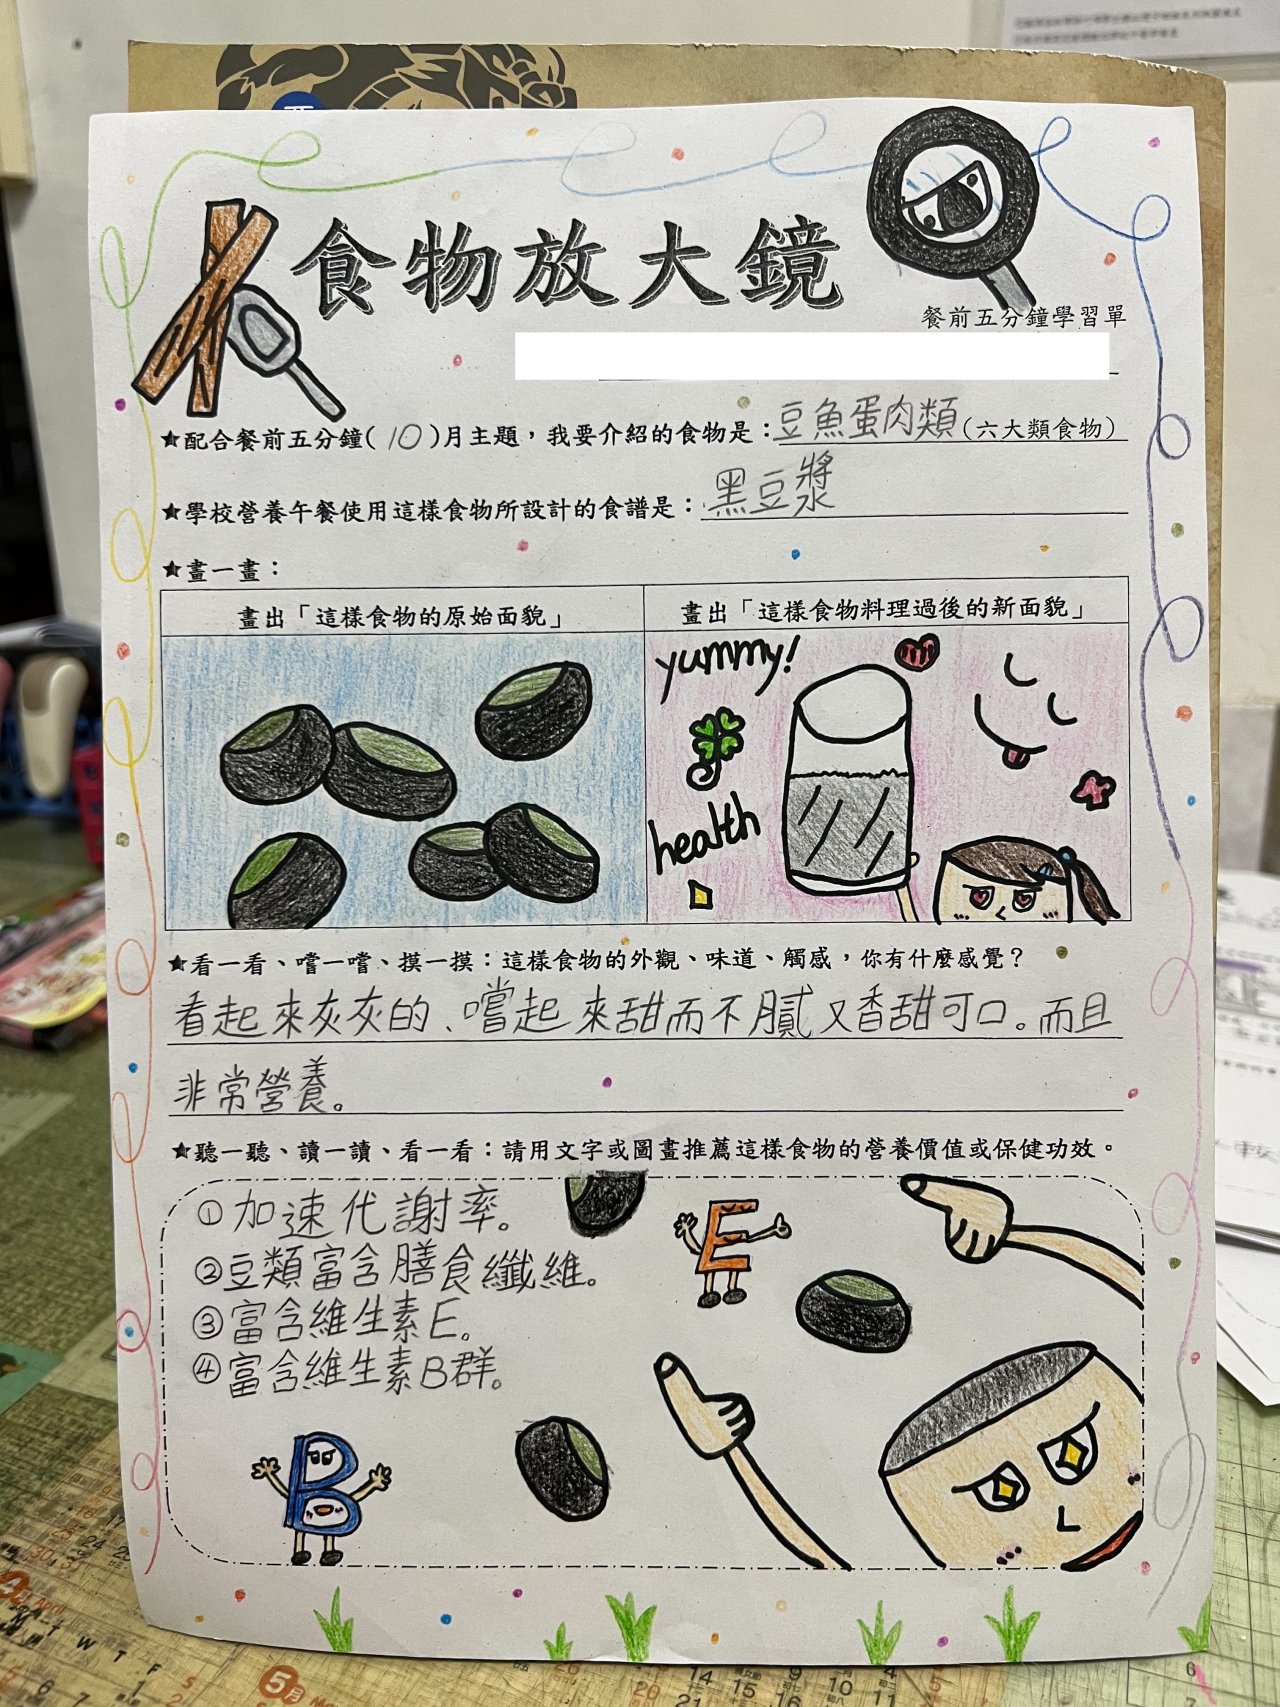 食物放大鏡
餐前五分鐘學習單
★配合餐前五分鐘(10)月主題，我要介紹的食物是：豆魚蛋肉類(六大類食物)
★學校營養午餐使用這樣食物所設計的食譜是：黑豆漿
★畫一畫：
畫出「這樣食物的原始面貌」
畫出「這樣食物料理過後的新面貌」
yummy!
health
★看一看、嚐一嚐、摸一摸：這樣食物的外觀、味道、觸感，你有什麼感覺？
看起來灰灰的、嚐起來甜而不膩又香甜可口。而且
非常營養。
★聽一聽、讀一讀、看一看：請用文字或圖畫推薦這樣食物的營養價值或保健功效。
①加速代謝率。
②豆類富含膳食纖維。
③富含維生素E。
④富含維生素B群。
E
B
6